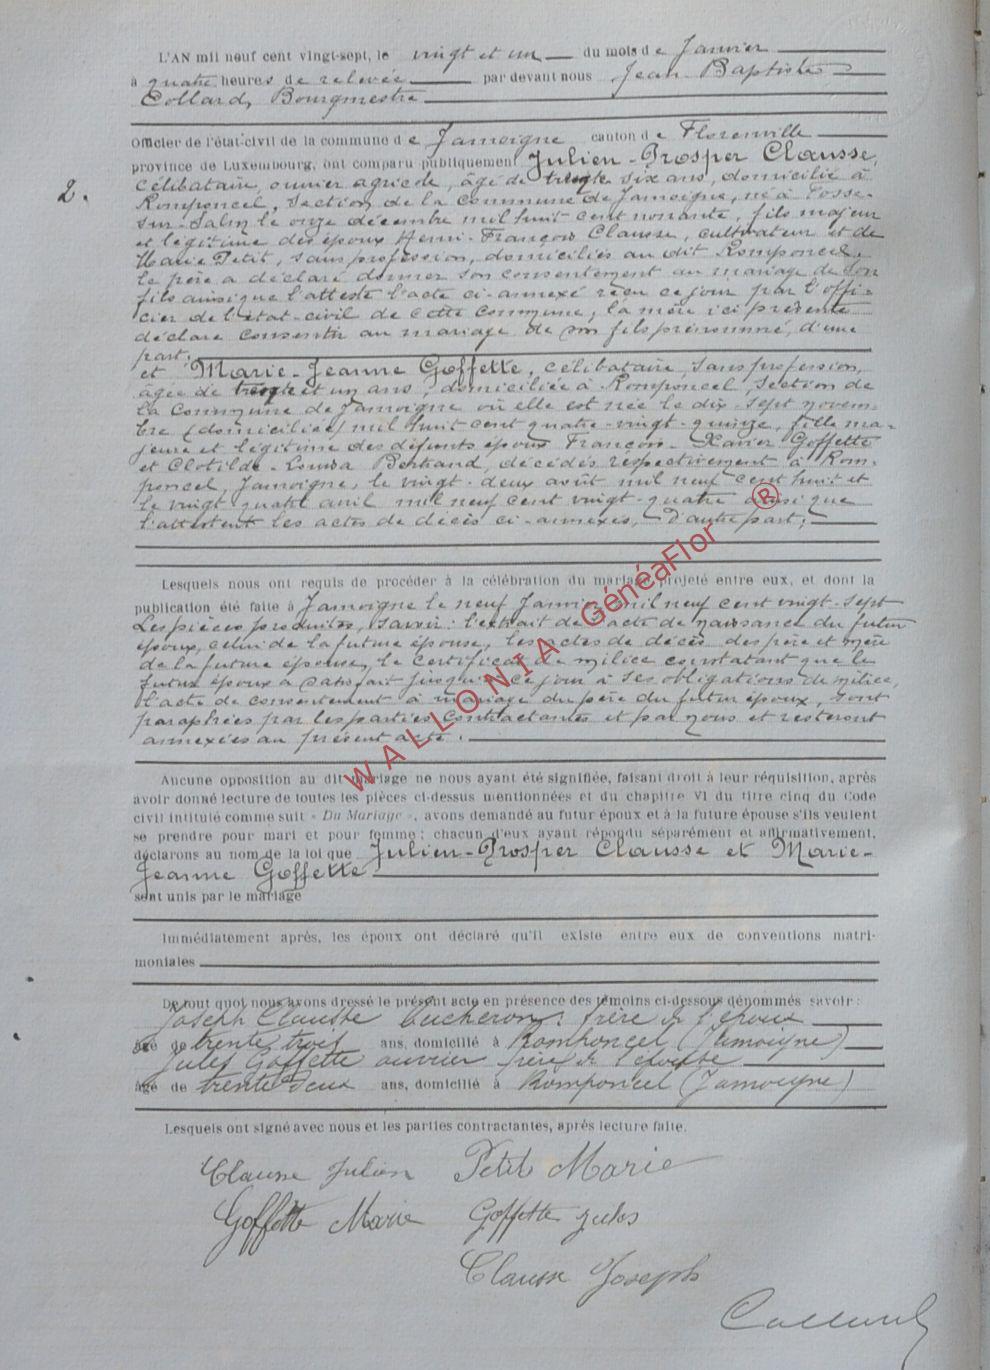 L'AN mil neuf cent vingt-sept, le vingt et un du mois de Janvier
à quatre heures de relevée par devant nous Jean Baptiste
Collard, Bourgmestre
Officier de l'état-civil de la commune de Jamoigne canton de Florenville
province de Luxembourg, ont comparu publiquement Julien-Prosper Clausse,
célibataire, ouvrier agricole, âgé de trente six ans, domicilié à
2.
Romponcel, section de la Commune de Jamoigne, né à Fosse-
sur-Salm le onze décembre mil huit cent nonante, fils majeur
et légitime des époux Henri-François Clausse, cultivateur et de
Marie Petit, sans profession, domiciliés au dit Romponcel,
le père a déclaré donner son consentement au mariage de son
fils ainsi que l'atteste l'acte ci-annexé reçu ce jour par l'offi-
cier de l'état-civil de cette commune, la mère ici présente
déclare consentir au mariage de son fils prénommé, d'une
part.
et Marie-Jeanne Goffette, célibataire, sans profession,
âgée de trente et un ans, domiciliée à Romponcel, section de
la Commune de Jamoigne où elle est née le dix-sept novem-
bre (domiciliée) mil huit cent quatre-vingt-quinze, fille ma-
jeure et légitime des défunts époux François-Xavier Goffette
et Clotilde-Louisa Bertrand, décédés respectivement à Rom-
poncel, Jamoigne, le vingt-deux août mil neuf cent huit et
le vingt quatre avril mil neuf cent vingt-quatre ainsi que
l'attestent les actes de décès ci-annexés, d'autre part;
Lesquels nous ont requis de procéder à la célébration du mariage projeté entre eux, et dont la
publication été faite à Jamoigne le neuf Janvier mil neuf cent vingt-sept
Les pièces produites, savoir: l'extrait de l'acte de naissance du futur
époux, celui de la future épouse, les actes de décès des père et mère
de la future épouse, le certificat de milice constatant que le
futur époux a satisfait jusqu'à ce jour à ses obligations de milice,
l'acte de consentement à mariage du père du futur époux, sont
paraphées par les parties contractantes et par nous et resteront
annexées au présent acte.
Aucune opposition au dit mariage ne nous ayant été signifiée, faisant droit à leur réquisition, après
avoir donné lecture de toutes les pièces ci-dessus mentionnées et du chapitre VI du titre cinq du Code
civil intitulé comme suit « Du Mariage », avons demandé au futur époux et à la future épouse s'ils veulent
se prendre pour mari et pour femme ; chacun d'eux ayant répondu séparément et affirmativement,
déclarons au nom de la loi que Julien-Prosper Clausse et Marie-
Jeanne Goffette
sont unis par le mariage
Immédiatement après, les époux ont déclaré qu'il existe entre eux de conventions matri-
moniales
De tout quoi nous avons dressé le présent acte en présence des témoins ci-dessous dénommés savoir :
Joseph Clausse bucheron, frère de l'époux
âgé de trente trois ans, domicilié à Romponcel (Jamoigne)
Jules Goffette ouvrier frère de l'épouse
âgé de trente deux ans, domicilié à Romponcel (Jamoigne)
Lesquels ont signé avec nous et les parties contractantes, après lecture faite.
Clausse Julien Petit Marie
Goffette Marie Goffette Jules
Clausse Joseph
Collard
WALLONIA GénéaFlor ®